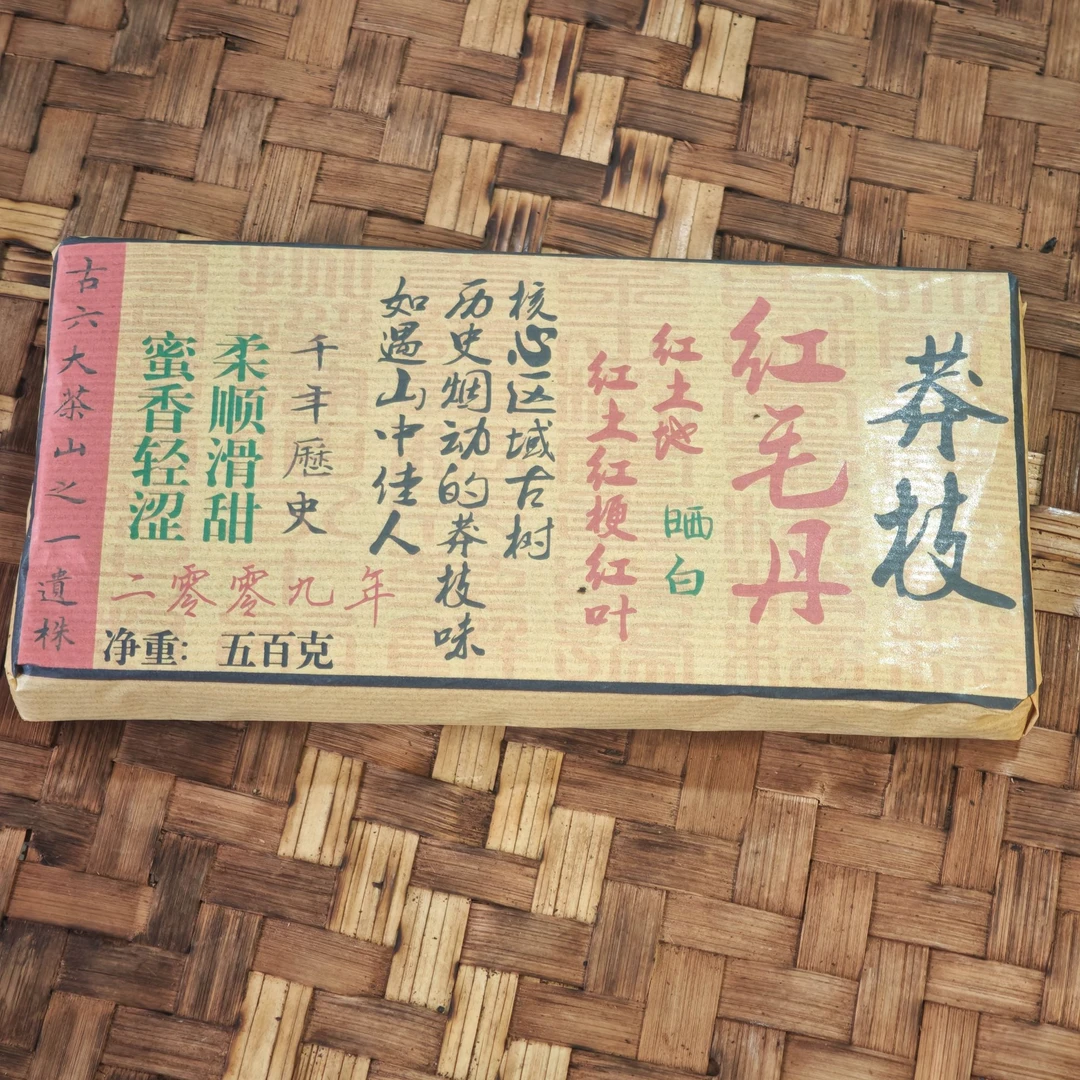 莽枝
红毛丹
红土地
晒白
红土红梗红叶
核心区域古树
历史烟动的莽枝味
如遇山中佳人
千年歷史
柔顺滑甜
蜜香轻涩
二零零九年
净重：五百克
古六大茶山之一遺株